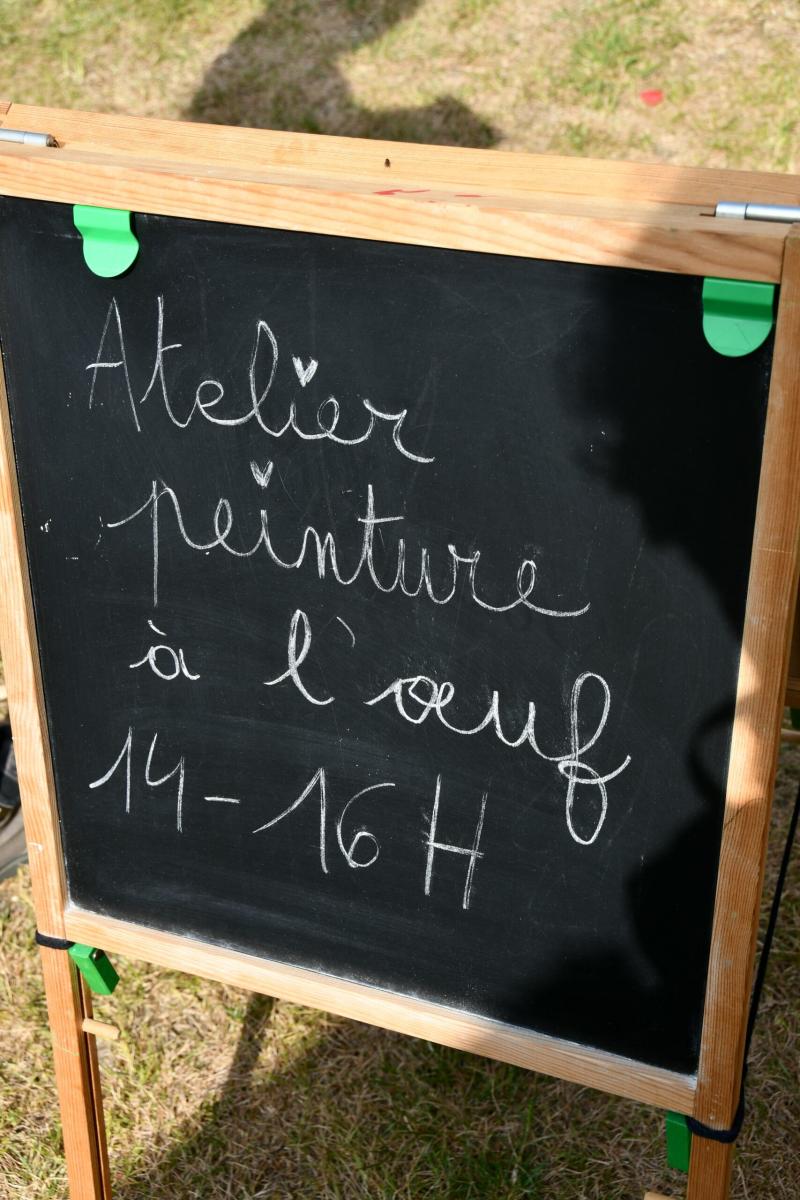 Atelier
peinture
à l'œuf
14-16 H